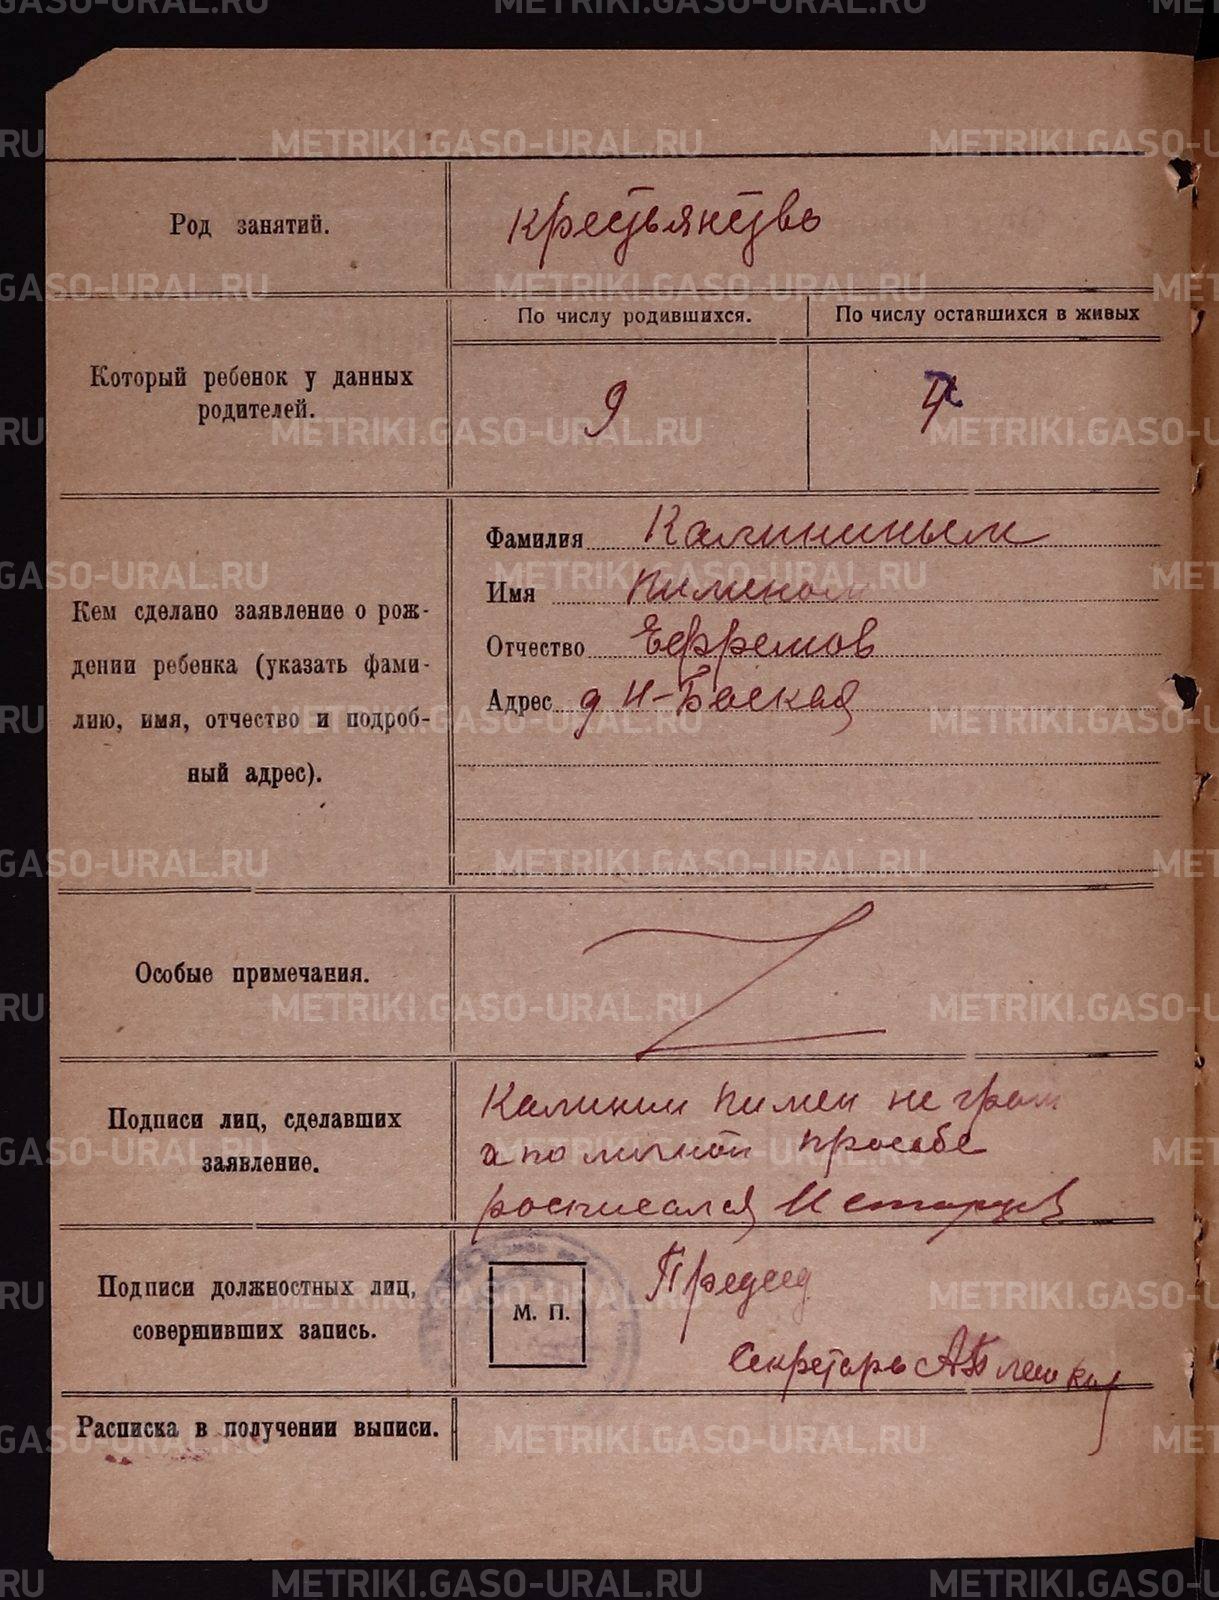 Род занятий.
крестьянство
Который ребенок у данных
родителей.
По числу родившихся.
По числу оставшихся в живых
9
4
Кем сделано заявление о рож-
дении ребенка (указать фами-
лию, имя, отчество и подроб-
ный адрес).
Фамилия Калининым
Имя Пименом
Отчество Ефремов
Адрес д Н-Баская
Особые примечания.
Подписи лиц, сделавших
заявление.
Калинин Пимен не грам
а по личной просьбе
росписался И Старцев
Подписи должностных лиц,
совершивших запись.
М. П.
Председ
Секретарь
Расписка в получении выписи.
METRIKI.GASO-URAL.RU